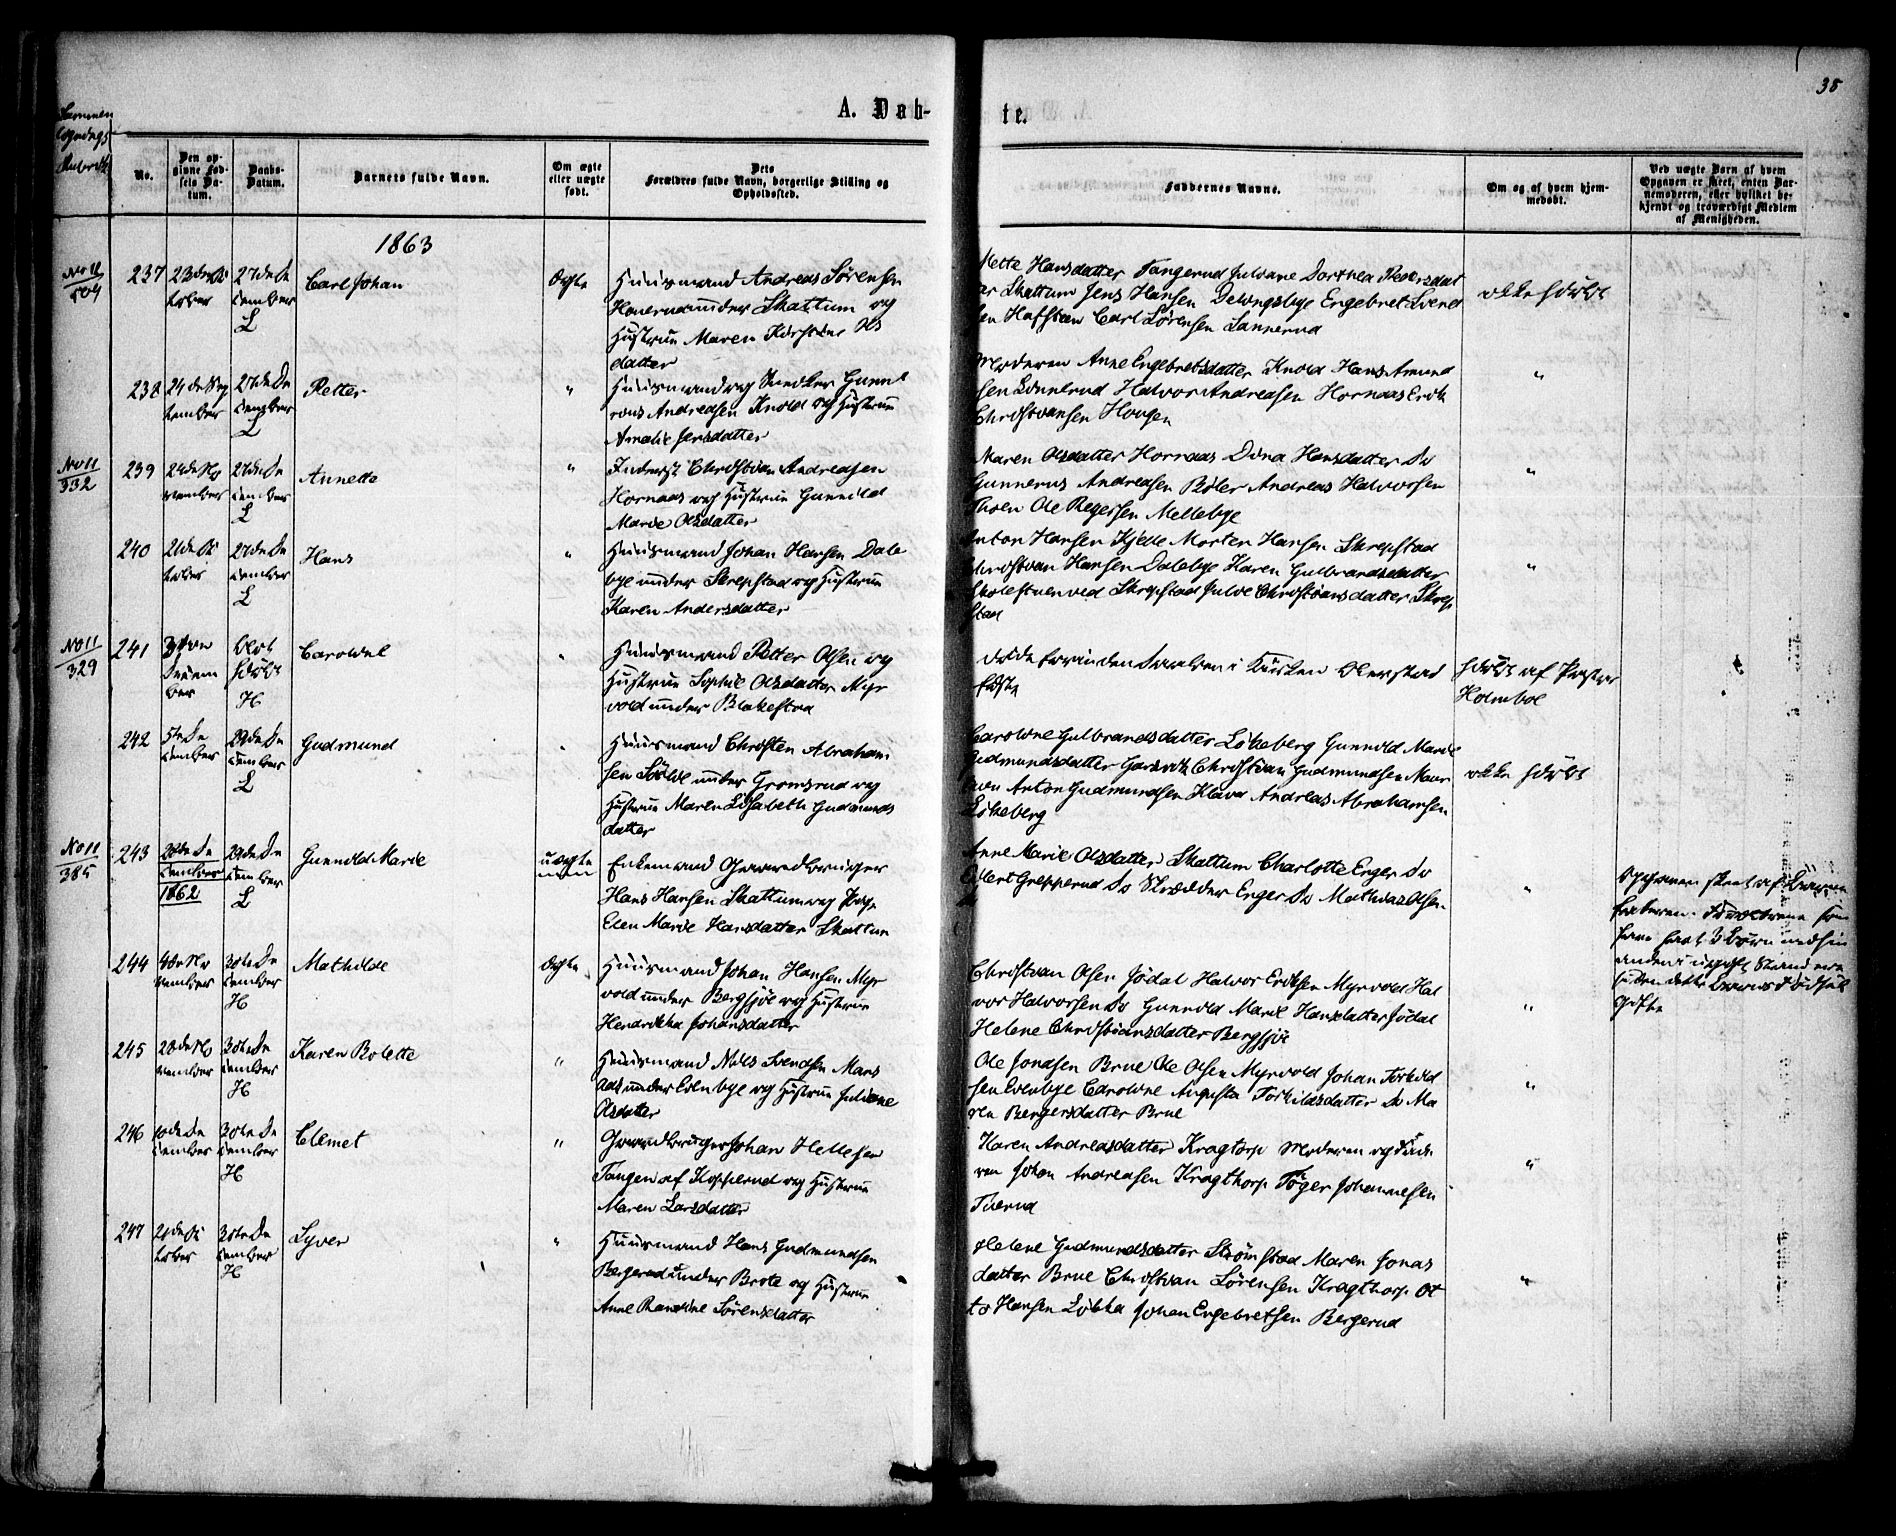 38
A. Døb-
te.
No.
Den op-
givne Fød-
sels Da-
tum.
Daabs-
Datum.
Barnets fulde Navn.
Om ægte
eller uægte
født.
Dets
Forældres fulde Navn, borgerlige Stilling og
Opholdssted.
Faddernes Navne.
Om og af hvem hjem-
medøbt.
Ved uægte Børn af hvem
Opgaven er skeet, enten Bar-
nemoderen, eller hvilket be-
kjendt og troværdigt Medlem
af Menigheden.
1863
No 11
237
Carl Johan
Ægte
Huusmand Andreas Sørensen
under Skattum og
Hustrue Maren Kirstine Ols
datter
Mette Hansdatter Tangerud Juliane Dorthea Pedersdat
ter Skattum Jens Hansen Delingsbye Engebret Svend
sen Hafsteen Carl Sørensen Sannerud
ikke hdøbt
238
24de Sep
tember
27de De
cember
L
Petter
"
Huusmand og Snedker Gunne
rius Andreasen Knold og Hustrue
Amalie Jensdatter
Moderen Anne Engebretsdatter Knold Hans Amund
sen Lonnerud Halvor Andreasen Hornaas Erik
Christiansen Hougen
"
No 11
332
239
24de No
vember
27de De
cember
L
Annette
"
Inderst Christian Andreasen
Hornaas og Hustrue Gunnild
Marie Olsdatter
Maren Olsdatter Hornaas Dina Hansdatter Do
Gunnerus Andreasen Bøler Andreas Halvorsen
Thoen Ole Regersen Mellebye
"
240
27de De
cember
L
Hans
"
Huusmand Johan Hansen Dale
bye under Skrepstad og Hustrue
Karen Andersdatter
Anton Hansen Kjelle Morten Hansen Skrepstad
Christian Hansen Dalebye Karen Gulbrandsdatter
Skolestuen ved Skrepstad Julie Christiansdatter Skrep
stad
"
No 11
329
241
H
Caroline
"
Huusmand Petter Olsen og
Hustrue Sophie Olsdatter Myr
vold under Blakestad
døde førinden Daaben i Kirken
hdøbt af Pastor
Holmboe
242
5te De
cember
29de De
cember
L
Gudmund
"
Huusmand Christen Abraham
sen under Gromsrud og
Hustrue Maren Lisabeth Gudmunds
datter
Caroline Gulbrandsdatter Løkeberg Gunnild Marie
Gudmundsdatter Christian Gudmundsen
Anton Gudmundsen Klava Andreas Abrahamsen
Løkeberg
ikke hdøbt
No 11
385
243
28de De
cember
1862
29de De
cember
L
Gunnild Marie
uægte
Enkemand Gaardbruger
Hans Hansen Skattum og Pige
Elen Marie Hansdatter Skattum
Anne Marie Olsdatter Skattum Charlotte Enger Do
Grepperud Do Skrædder Enger Do Mathias Olsen
"
Opgaven skeet af Barne
faderen. Forældrene som
have havt 3 Børn med hin
anden i uægte Stand ere
siden dette Barns Fødsel
gifte
244
4de No
vember
30te De
cember
H
Mathilde
Ægte
Huusmand Johan Hansen Myr
vold under Bergsjøe og Hustrue
Hendrikka Johansdatter
Christian Olsen Jødal Halvor Eriksen Myrvold Hal
vor Halvorsen Do Gunnild Marie Hansdatter Jødal
Helene Christiansdatter Bergsjøe
"
245
28de No
vember
30te De
cember
H
Karen Bolette
"
Huusmand Nils Svendsen Mans
aas under Evenbye og Hustrue Juliane
Olsdatter
Ole Jonasen Brue Ole Olsen Myrvold Johan Torkild
sen Evenbye Caroline Augusta Torkildsdatter Do Ma
ren Bergersdatter Brue
"
246
10de De
cember
30te De
cember
H
Clemet
"
Gaardbruger Johan Hellesen
Tangen af Kopperud og Hustrue
Maren Larsdatter
Karen Andreasdatter Kragtorp Moderen og Fade
ren Johan Andreasen Kragthorp Töger Johannesen
Tuerud
"
247
30te De
cember
H
Syver
"
Huusmand Hans Gudmundsen
Bergerud under Brote og Hustrue
Anne Randine Sørensdatter
Helene Gudmundsdatter Strømstad Maren Jonas
datter Brue Christian Sørensen Kragthorp Ot
to Hansen Løkka Johan Engebretsen Bergerud
"